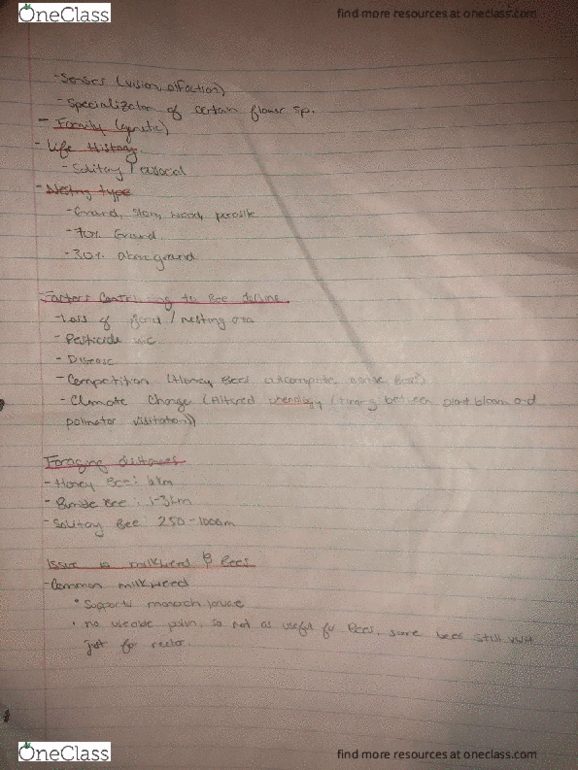 OneClass
find more resources at oneclass.com
- Senses (vision, olfaction)
- Specialization of certain flower sp.
- Family (genetic)
- Life History
- Solitary /
- Nesting type
- Ground, Stem, wood, parasite
- 70% Ground
- 30% above ground
Factors Contributing to Bee decline
- Loss of floral / nesting area
- Pesticide use
- Disease
- Competition (Honey Bees outcompete native Bees)
- Climate Change (Altered phenology (timing between plant bloom and
pollinator visitation))
Foraging distances
- Honey Bee: km
- Bumble Bee: 1-3km
- Solitary Bee: 250-1000m
Issue w milkweed & Bees
- Common milkweed
• Supports monarch larvae
• no useable pollen, so not as useful for Bees, some bees still visit
just for nectar.
OneClass
find more resources at oneclass.com